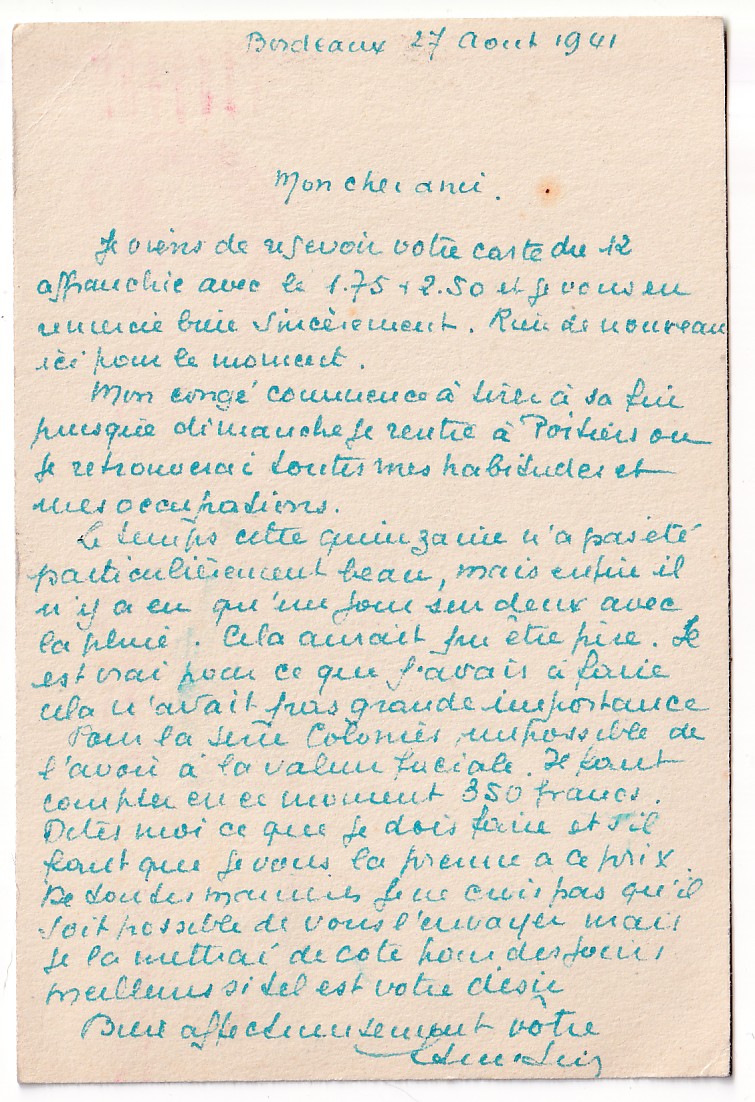 Bordeaux 27 Aout 1941
Mon cher ami.
Je viens de recevoir votre carte du 12
affranchie avec le 1.75 + 2.50 et je vous en
remercie bien sincèrement. Rien de nouveau
ici pour le moment.
Mon congé commence à tirer à sa fin
puisque dimanche je rentre à Poitiers ou
je retrouverai toutes mes habitudes et
mes occupations.
Le temps cette quinzaine n'a pas été
particulièrement beau, mais enfin il
n'y a eu qu'un jour sur deux avec
la pluie. Cela aurait pu être pire. Il
est vrai pour ce que j'avais à faire
cela n'avait pas grande importance
Pour la série Colonies impossible de
l'avoir à la valeur faciale. Il faut
compter en ce moment 350 francs.
Dites moi ce que je dois faire et s'il
faut que je vous la prenne a ce prix.
De toutes manieres je ne crois pas qu'il
soit possible de vous l'envoyer mais
je la mettrai de coté pour des jours
meilleurs si tel est votre désir
Bien affectueusement votre